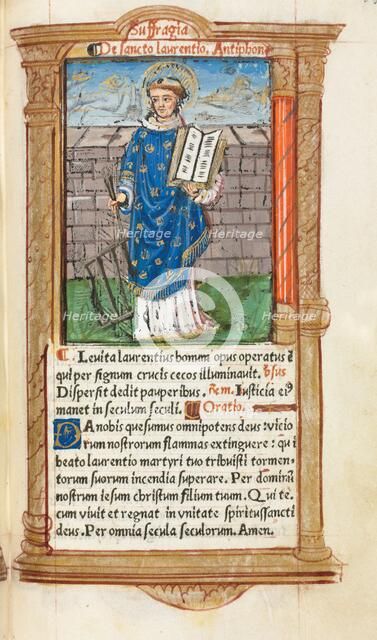 Suffragia
De sancto laurentio. Antiphona
Levita laurentius bonum opus operatus ē
qui per signum crucis cecos illuminauit. v̄sus
Dispersit dedit pauperibus. Rem. Iusticia eiꝰ
manet in seculum seculi. Oratio.
DA nobis quesumus omnipotens deus: vicio
rum nostrorum flammas extinguere: qui
beato laurentio martyri tuo tribuisti tormen-
torum suorum incendia superare. Per dominū
nostrum iesum christum filium tuum. Qui te-
cum viuit et regnat in vnitate spiritussancti
deus. Per omnia secula seculorum. Amen.
Heritage
Heritage
Heritage
Heritage
Heritage
Heritage